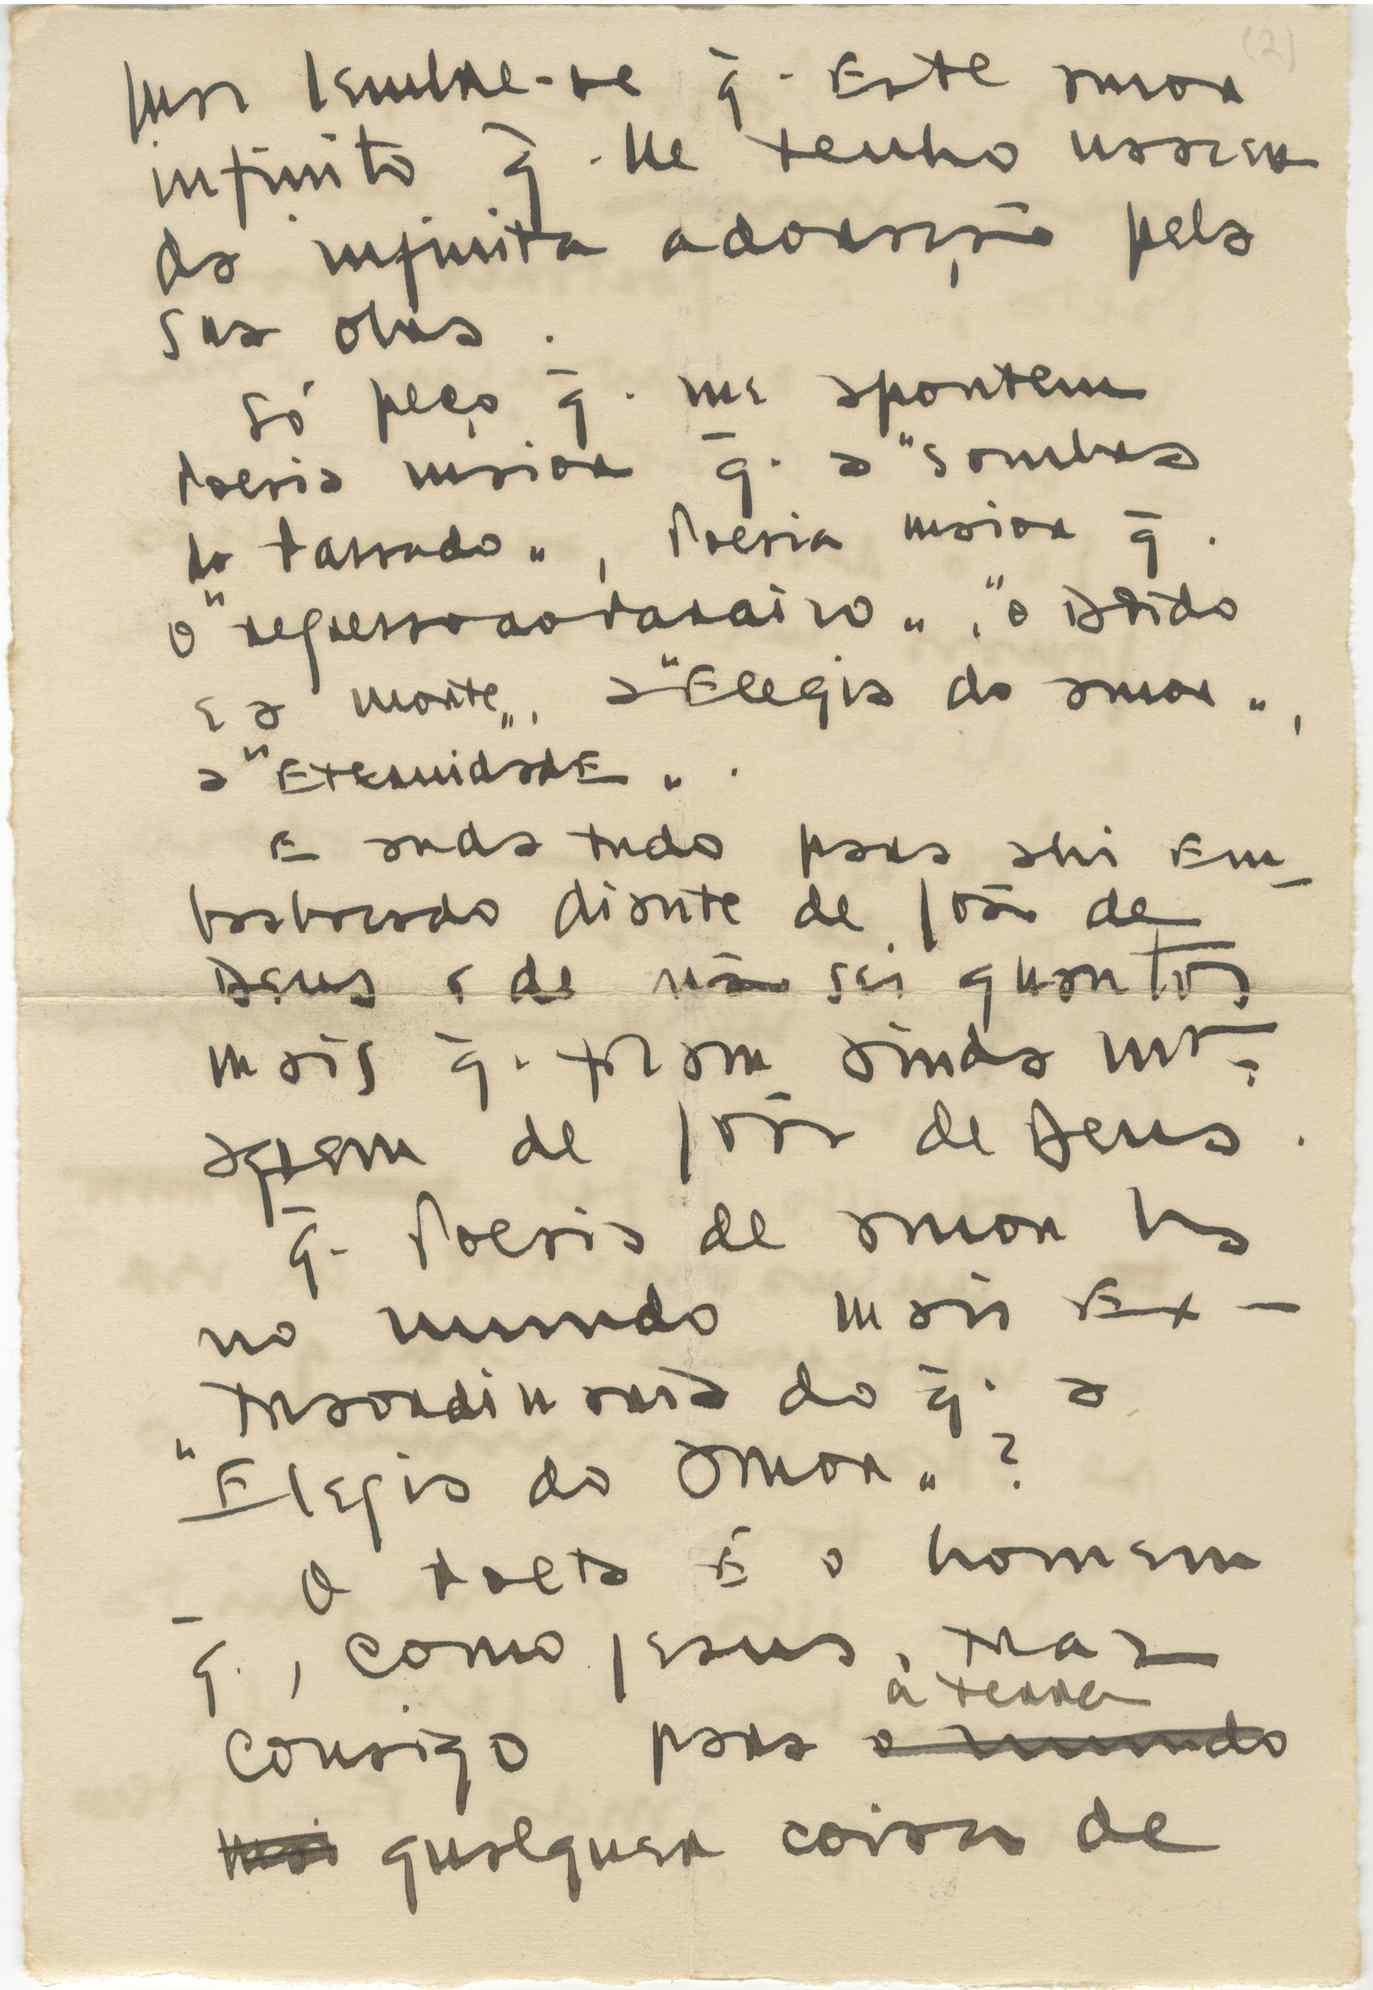 (2)
mas lembre-se q̄. Este amor
infinito q̄. lhe tenho nasceu
da infinita adoração pela
sua obra.
Só peço q̄. me apontem
Poesia maior q̄. a "Sombra
do Passado", Poesia maior q̄.
o "regresso ao Paraizo", "o Doido
e a morte", a "Elegia do amor",
a "Eternidade".
E anda tudo para ahi em-
basbacado diante de João de
Deus e de não sei quantos
mais q̄. foram ainda
de João de Deus.
q̄. Poesia de amor ha
no mundo mais Ex-
traordinaria do q̄. a
"Elegia do amor"?
O Poeta É o homem
q̄., como Jesus, traz
à terra
consigo para o mundo
mai qualquer coisa de